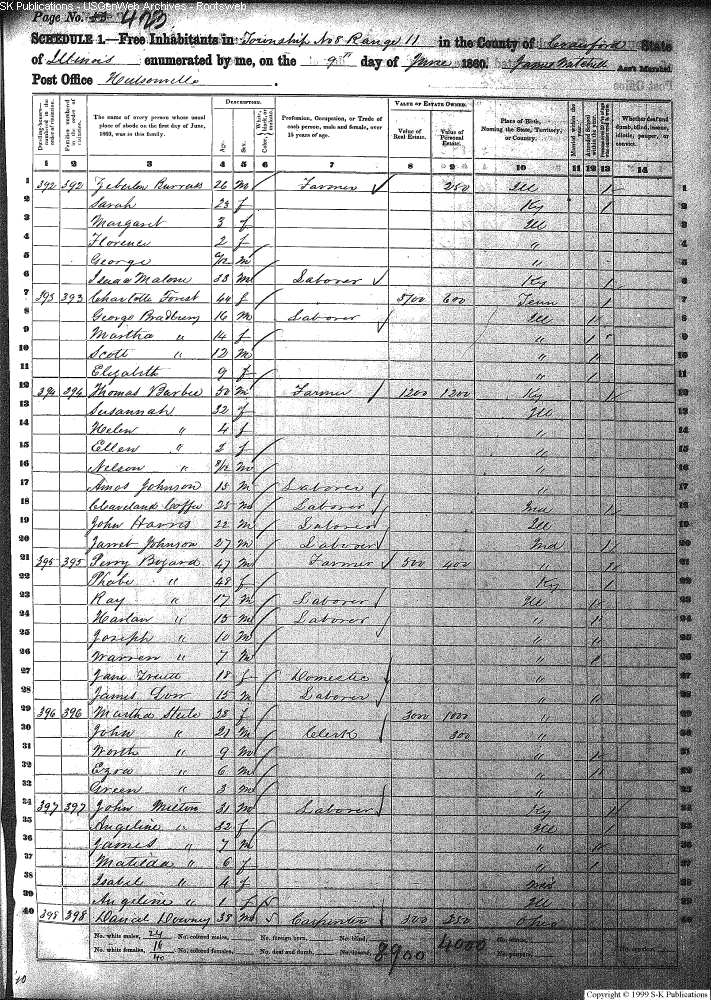 SK Publications - USGenWeb Archives - Rootsweb
Page No. 420
SCHEDULE 1.—Free Inhabitants in Township No 8 Range 11 in the County of Crawford State
of Illinois enumerated by me, on the 9th day of June 1860. James Mitchell Ass't Marshal.
Post Office Hutsonville.
Dwelling-houses—numbered in the order of visitation.
Families numbered in the order of visitation.
The name of every person whose usual place of abode on the first day of June, 1860, was in this family.
DESCRIPTION.
Age. Sex. Color, White, black, or mulatto.
Profession, Occupation, or Trade of each person, male and female, over 15 years of age.
VALUE OF ESTATE OWNED.
Value of Real Estate. Value of Personal Estate.
Place of Birth, Naming the State, Territory, or Country.
Married within the year.
Whether deaf and dumb, blind, insane, idiotic, pauper, or convict.
1 2 3 4 5 6 7 8 9 10 11 12 13 14
1 392 392 Burrass 26 m Farmer 250 Ill 1 1
2 Sarah 23 f Ky 1 2
3 Margaret 3 f Ill 3
4 Florence 2 f " 4
5 George m " 5
6 Isaac Malone 33 m Laborer Ky 1 6
7 393 393 Charlotte Forest 44 f 3700 600 Tenn 1 7
8 George Bradbury 16 m Laborer Ill 1 8
9 Martha " 14 f " 1 9
10 Scott " 12 m " 1 10
11 Elizabeth 9 f " 1 11
12 394 394 Thomas Barbee 50 m Farmer 1200 1200 Ky 1 12
13 Susannah 32 f Ill 13
14 Helen " 4 f " 14
15 Ellen " 2 f " 15
16 Nelson " 8/12 m " 16
17 Amos Johnson 15 m Laborer " 17
18 Cleaveland Coffee 25 m Laborer Ind 1 18
19 John Harris 22 m Laborer Ill 19
20 Jarret Johnson 27 m Laborer Ind 1 20
21 395 395 Perry Bogard 47 m Farmer 500 400 " 1 21
22 Phobe " 48 f Ky 1 22
23 Ray " 17 m Laborer Ill 1 23
24 Harlan " 15 m Laborer " 1 24
25 Joseph " 10 m " 1 25
26 Warren " 7 m " 1 26
27 Jane Truitt 18 f Domestic " 27
28 James Dorr 15 m Laborer " 1 28
29 396 396 Martha Steele 38 f 3000 1000 " 29
30 John " 21 m Clerk 300 " 30
31 Worth " 9 m " 1 31
32 Ezra " 6 m " 1 32
33 Green " 3 m " 33
34 397 397 John Milton 31 m Laborer Ky 1 34
35 Angeline " 32 f Ill 1 35
36 James " 7 m " 1 36
37 Matilda " 6 f " 1 37
38 Isabel " 4 f 38
39 Angeline " 1 f Ill 39
40 398 398 Daniel Downey 38 m Carpenter 300 250 Ohio 40
No. white males, 24 No. colored males, No. foreign born, No. blind,
No. white females, 16 No. colored females, No. deaf and dumb, No. insane,
40 8900 4000
No. idiotic, No. paupers, No. convicts,
Copyright © 1999 S-K Publications